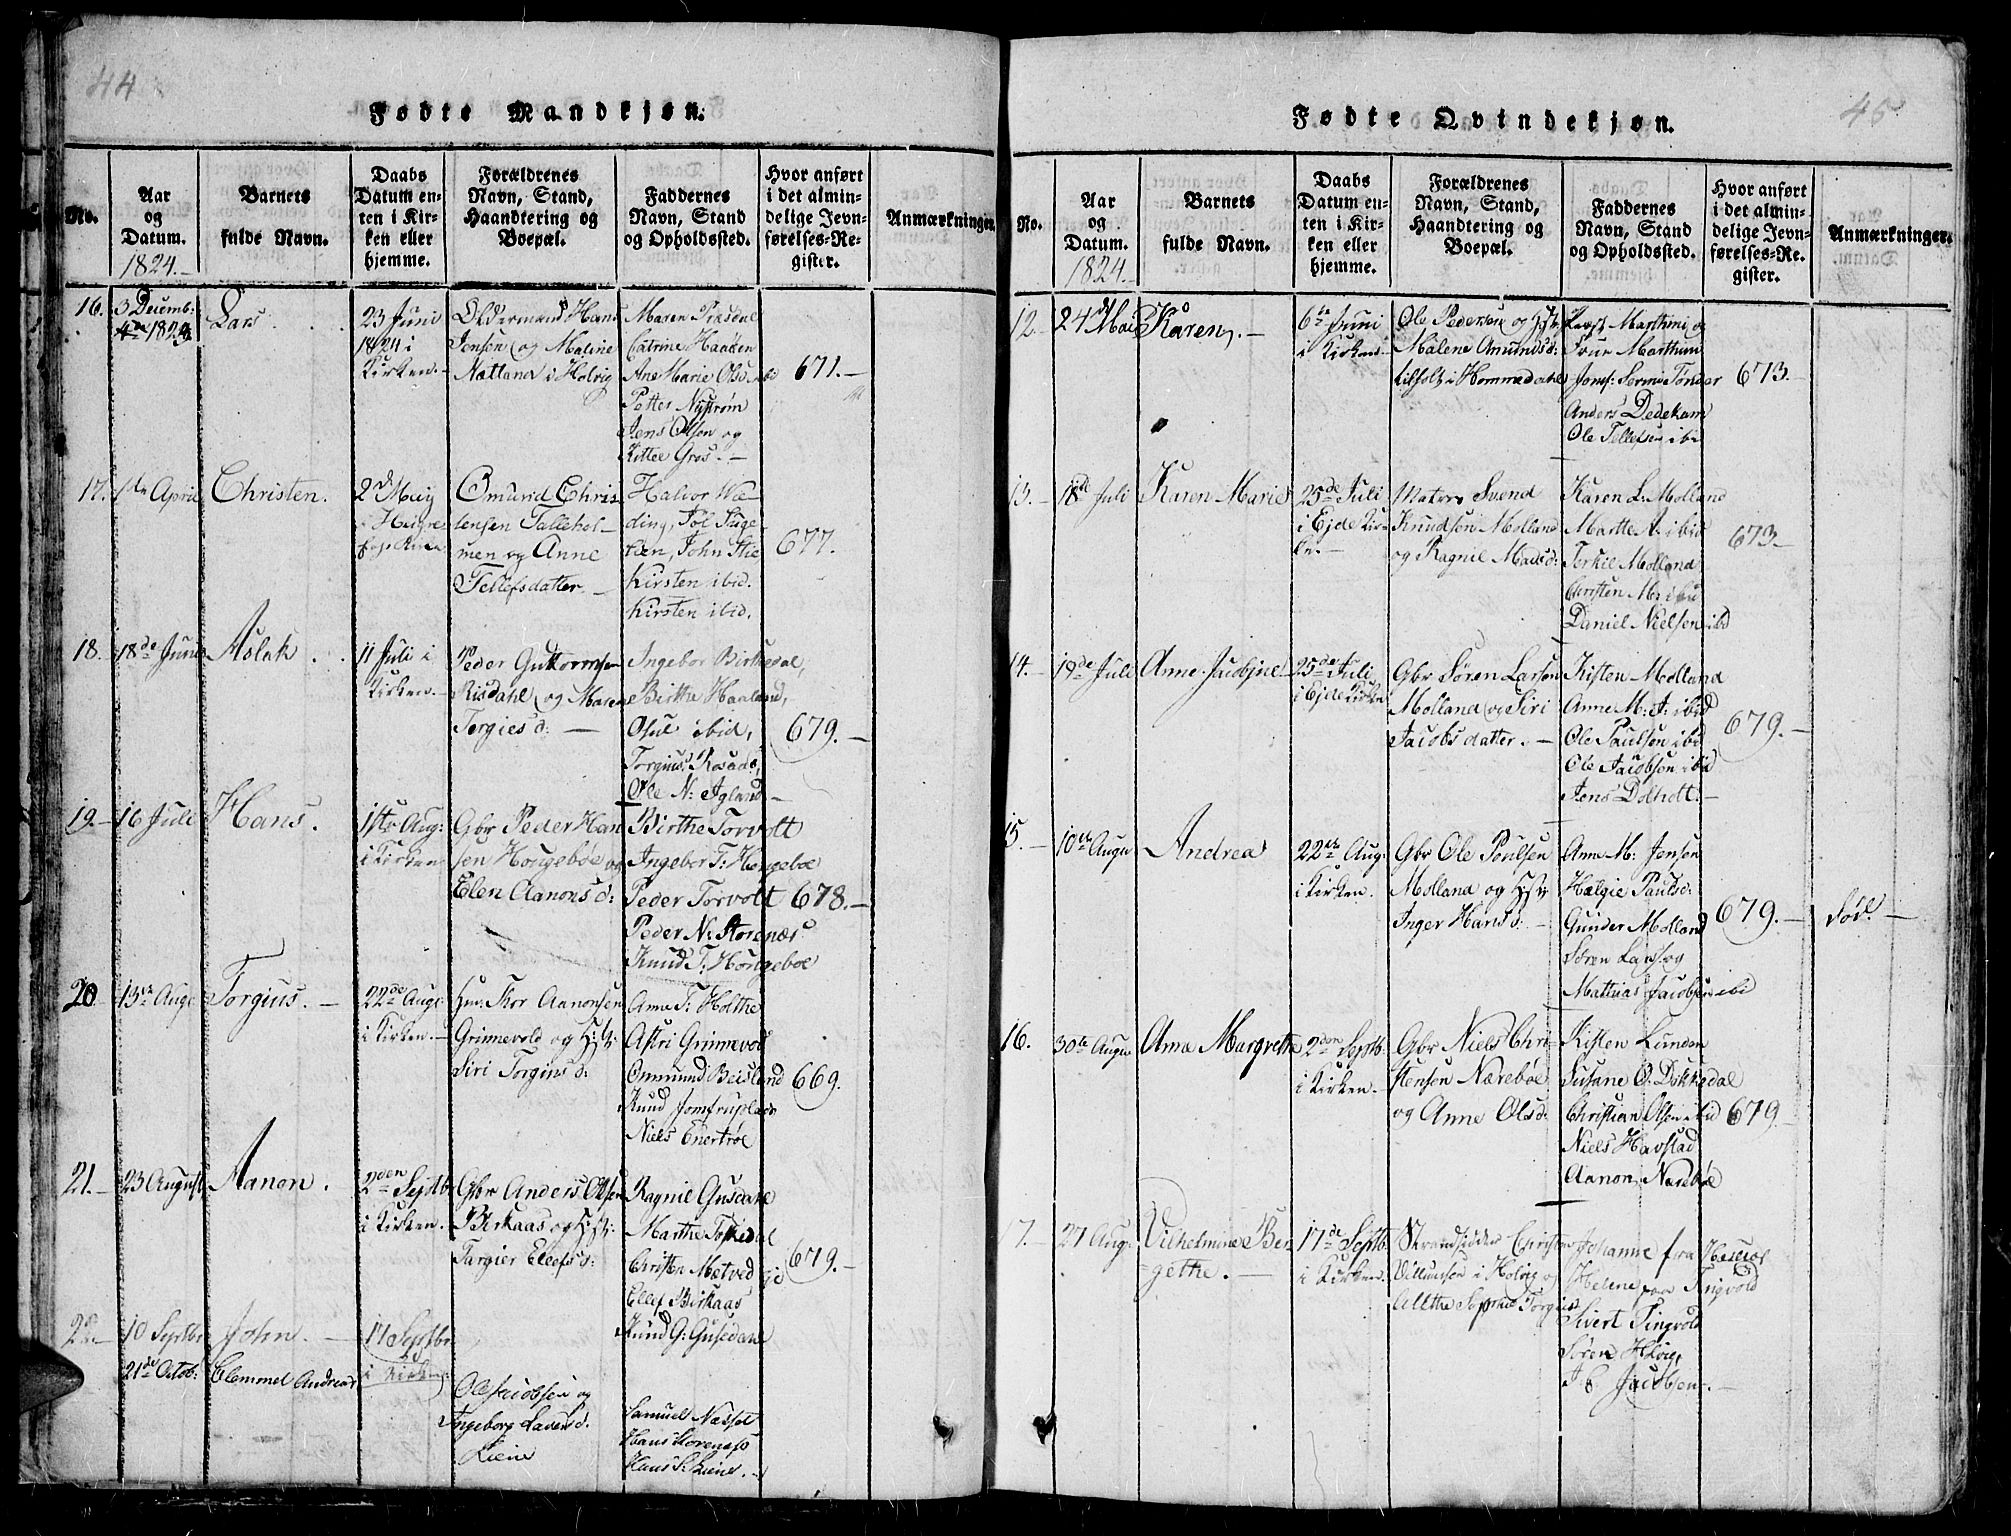 44
Fødte Mandkjøn.
No.
Aar og Datum.
1824.
Barnets fulde Navn.
Daabs Datum enten i Kirken eller hjemme.
Forældrenes Navn, Stand, Haandtering og Boepæl.
Faddernes Navn, Stand og Opholdssted.
Hvor anført i det almindelige Jevnførelses-Register.
Anmærkninger.
16.
3 Decemb:
1823
Lars
23 Juni
1824 i
Kirken.
Oldermand Hans
Jensen og Maline
Nætland i Holvig
Maren
Catrine Haagen
Ane Marie Olsd ibid
Petter Nystrøm
Jens Olsen og
Kittee Gros.
671.
17.
1ste April
Christen.
2d May
i Høyre
Omund Chris
tensen Tallehol-
men og Anne
Tellefsdatter.
Halvor Wæ-
ding, Joh
John Stie
Kirsten ibid.
Kirsten ibid.
677.
18.
18de Junii
Aslak
11 Juli i
Kirken.
Peder Guttormsen
Risdahl og Maren
Torgiesd:
Ingebor Birkedal,
Birthe Haaland,
Osul ibid,
Torgius Rosaas,
Ole N: Igland
679.
19.
16 Juli
Hans.
1ste Aug:
i Kirken
Gbr Peder Han
sen Hougebøe og
Elen Aanonsd:
Birthe Torvolt
Ingebor T: Hougeboe
Peder Torvolt
Peder N: Storenæs
Knud T: Hougeboe
678.
20
13de Aug
Torgius.
22de Aug:
i Kirken.
Hm: Thor Aanonsen
Grimevold og H:
Siri Torginsd:
Anne T: Holthe
Astri Grimevold
Ommund Beisland
Knud Jomfruplads
Niels Enertrøe
669.
21.
23 August
Aanon.
2den Septb
i Kirken.
Gbr Anders Olsen
Birkaas og Hst:
Targier Ellefsd:
Ragnil Gusdale
Marthe Topkedal
Christen Mætved
Ellef Birkaas
Knud G: Gusedale
679.
22.
10 Septbr
John.
17 Septbr
i Kirken
21de Octob:
Clemmel Andreas
Ole Jacobsen og
Ingeborg Larsd.
Liene
Samuel Næsset
Hans Storenæss
Hans S: Liene.
45
Fødte Qvindekjøn.
No.
Aar og Datum.
1824.
Barnets fulde Navn.
Daabs Datum enten i Kirken eller hjemme.
Forældrenes Navn, Stand, Haandtering og Boepæl.
Faddernes Navn, Stand og Opholdssted.
Hvor anført i det almindelige Jevnførelses-Register.
Anmærkninger.
12.
24d Mai
Karen,
6te Juni
i Kirken
Ole Pedersen og Hst
Malene Amundsd:
i Hommedahl
Marthini og
Frue Marthini
Jomf: Tønder
Anders Dedekam
Ole Tellefsen ibi
673.
13.
18de Juli
Karen Marie
25de Juli
i Ejde Kir-
ke.
Matros Svend
Knudsen Molland
og Ragnil Madsd:
Karen L: Molland
Marthe A. ibid
Terkil Molland
Christen M: ibid
Daniel Nielsen ibd
673
14.
19de Juli
Anne Jacobine
25de Juli
i Ejde Kirke
Gbr Søren Larsen
Molland og Siri
Jacobsdatter.
Kisten Molland
Anne M: A: ibid
Ole Paulsen ibid
Ole Jacobsen ibid
Jens Dolholt.
679.
15.
10de Augu
Andrea
22de Aug:
i Kirken.
Gbr Ole Poulsen
Molland og Hst
Inger Hansd:
Anne M: Jensen
Helgie Paulsd:
Gunder Molland
Søren Lars: og
Mathias Jacobsen ibid
679.
død.
16.
30te Augu
Anna Margrethe
2den Septb.
i Kirken.
Gbr Niels Chri-
stensen Nærebøe
og Anne Olsd:
Kisten Lunden
Susane O. Dikkedal
Christian Olsen ibid
Niels Havstad
Aanon Nærebøe
679.
17.
27 Aug.
Vilhelmine Ber
gethe.
17de Septb.
i Kirken.
Strandsidder Christen
Villumsen i Holvig og
Alethe Sophie Torgiesd
Johanne fra
Helene fra Ringvold
Sivert Ringvold
Søren Høie,
J. C. Jacobsen.